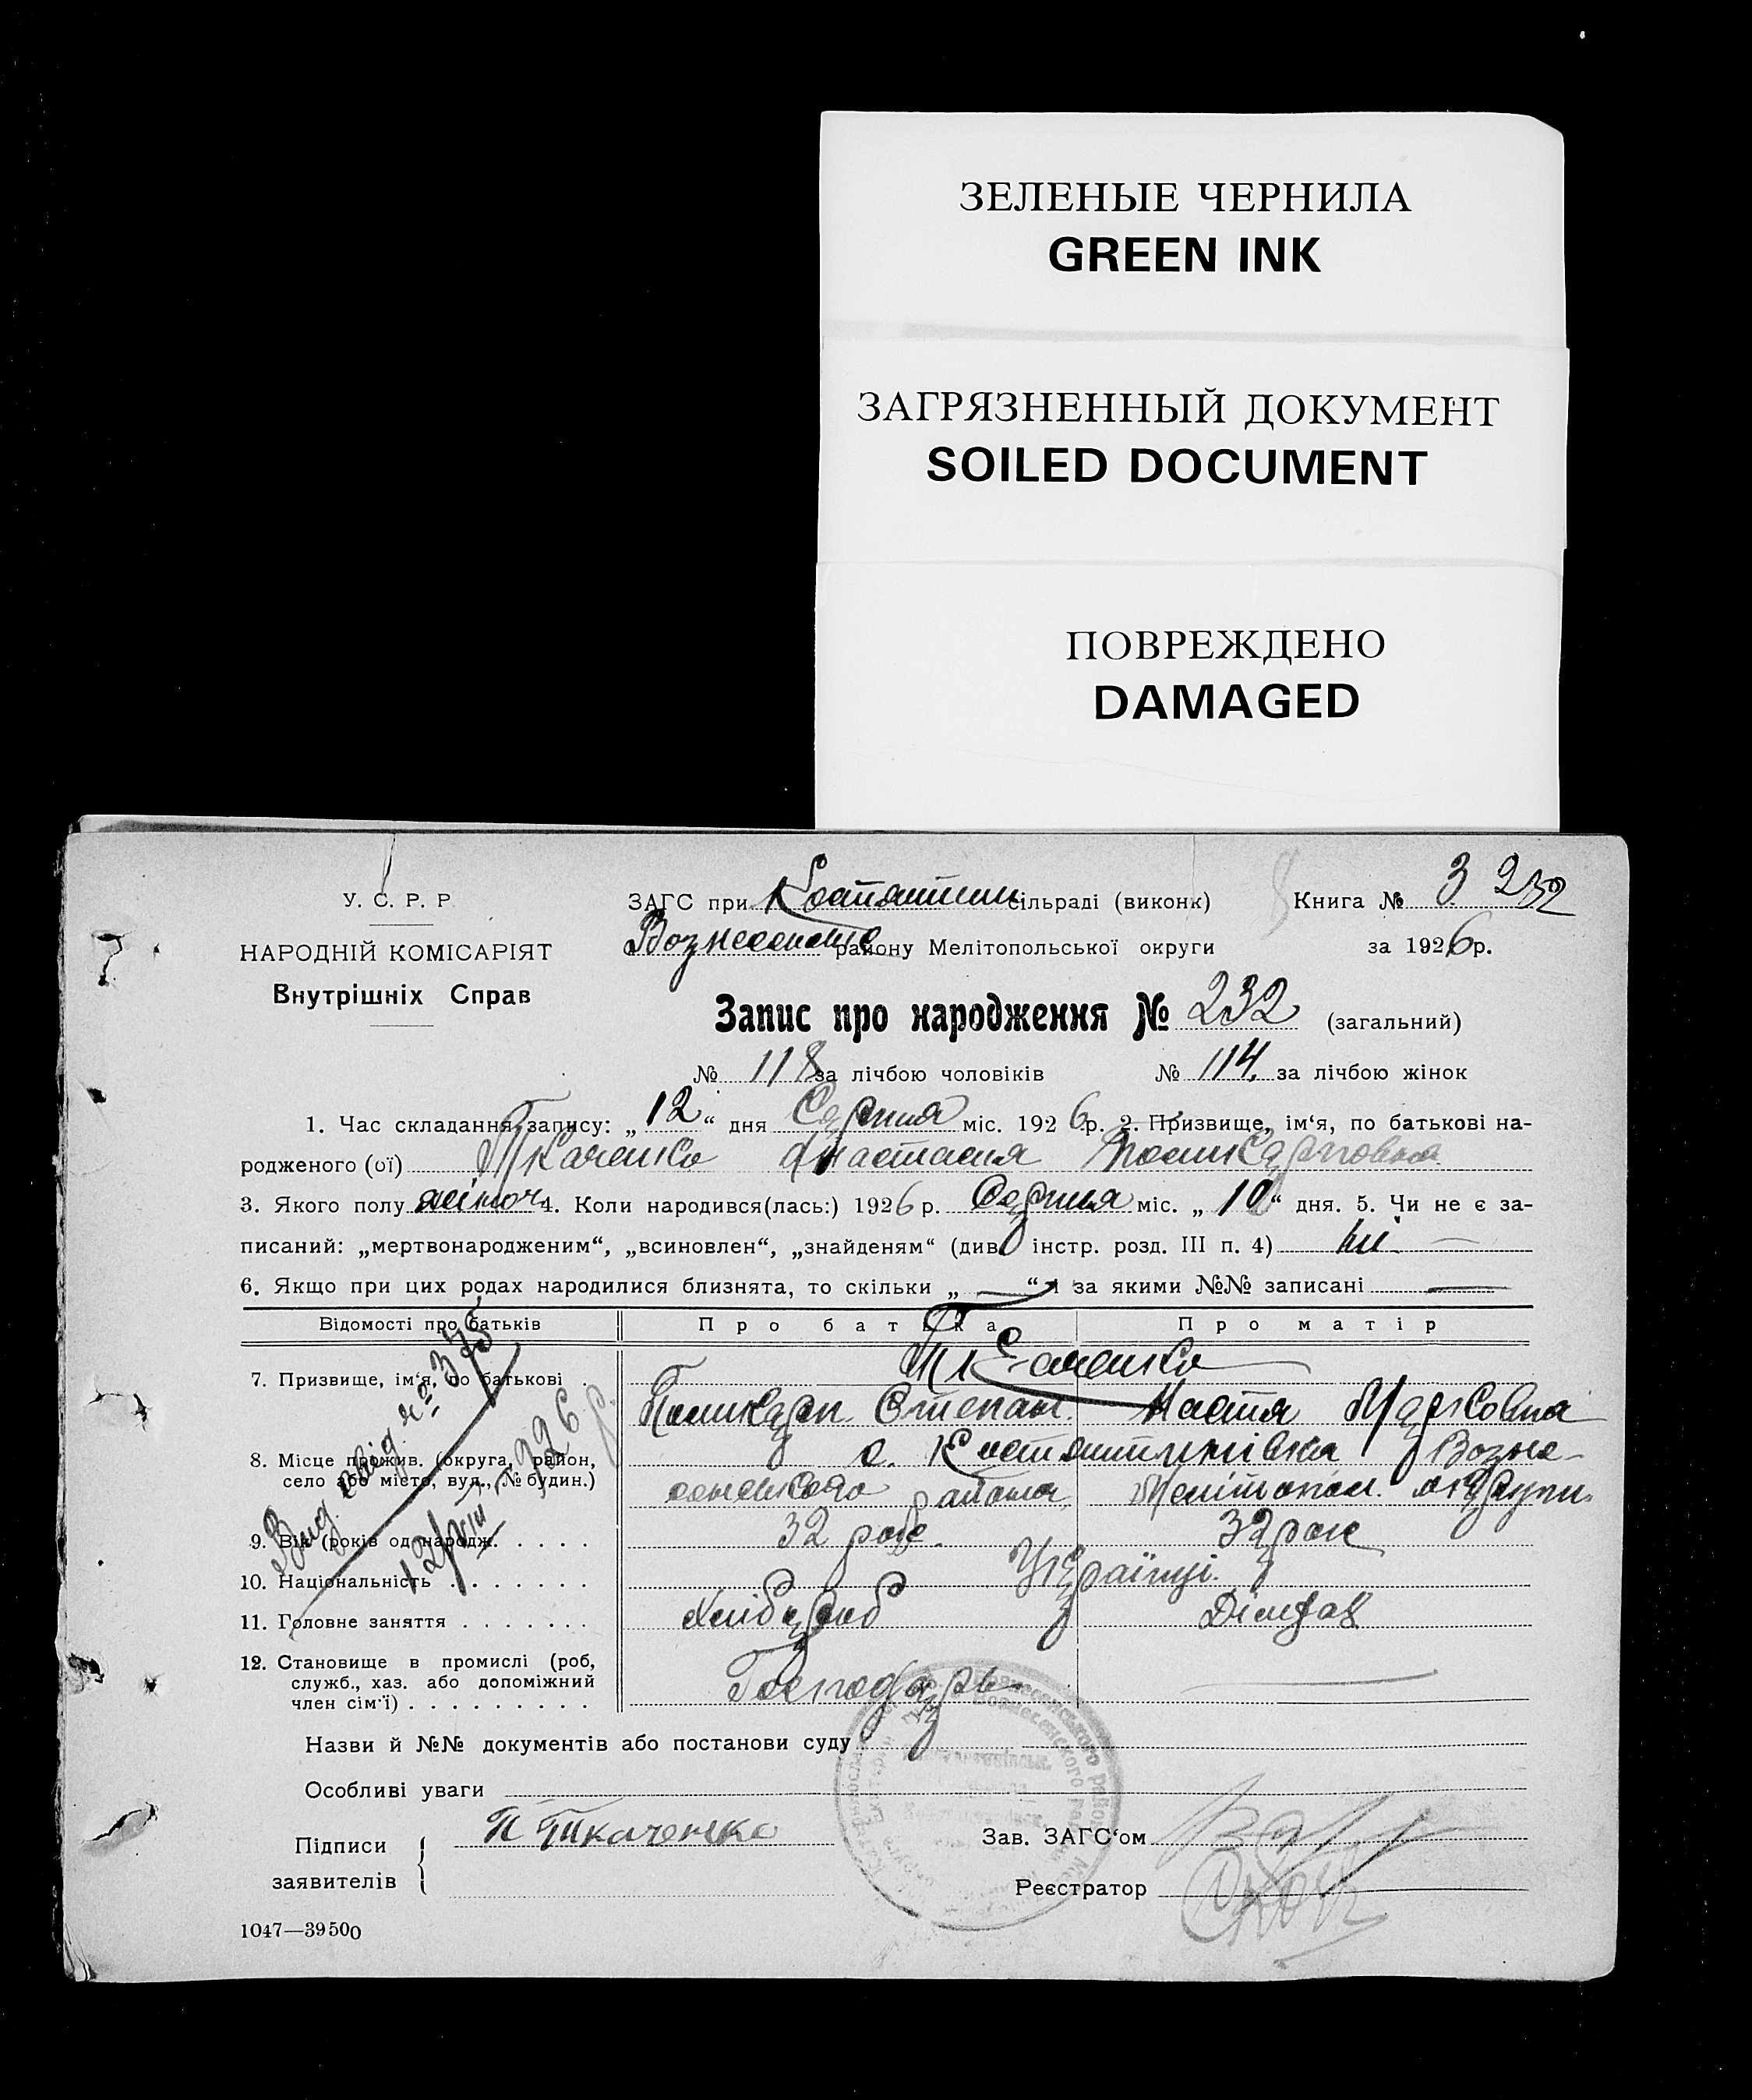 ЗЕЛЕНЫЕ ЧЕРНИЛА
GREEN INK
ЗАГРЯЗНЕННЫЙ ДОКУМЕНТ
SOILED DOCUMENT
ПОВРЕЖДЕНО
DAMAGED
У. С. Р. Р.
НАРОДНІЙ КОМІСАРІЯТ
Внутрішніх Справ
ЗАГС при сільраді (виконк) Книга № 3 232
району Мелітопольської округи за 1926 р.
Запис про народження № 232 (загальний)
№ 118 за лічбою чоловіків № 114 за лічбою жінок
1. Час складання запису: „12“ дня Серпня міс. 1926 р. 2. Призвище, ім‘я, по батькові на-
родженого (ої) Ткаченко Анастасия
3. Якого полу жіноч 4. Коли народився(лась:) 1926 р. Серпня міс. „10“ дня. 5. Чи не є за-
писаний: „мертвонародженим“, „всиновлен“, „знайденям“ (див. інстр. розд. III п. 4) ні —
6. Якщо при цих родах народилися близнята, то скільки „—“ і за якими №№ записані —
Відомості про батьків Про батька Про матір
7. Призвище, ім‘я, по батькові . Ткаченко
Поликарп Степан. Настя Марковна
8. Місце прожив. (округа, район,
село або місто, вул., № будин.)
с. Костянтинівка Возне-
сенського района Мелітопол. округи
9. Вік (років од народж. . . . . 32 рок. 32 рок
10. Національність . . . . . . . Українці.
11. Головне заняття . . . . . . . Хлібороб
12. Становище в промислі (роб,
служб., хаз. або допоміжний
член сім‘ї) . . . . . . . . . Господарь —
Вид. свід. № 375
12/VIII 1926 р.
Назви й №№ документів або постанови суду
Особливі уваги
Підписи
заявителів
П Ткаченко
Зав. ЗАГС‘ом
Реєстратор
1047—39500